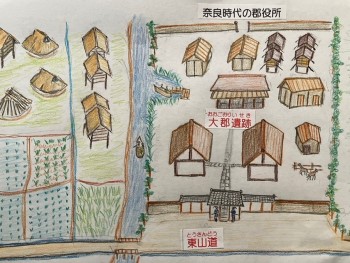 奈良時代の郡役所
おおごおりいせき
大郡遺跡
とうさんどう
東山道